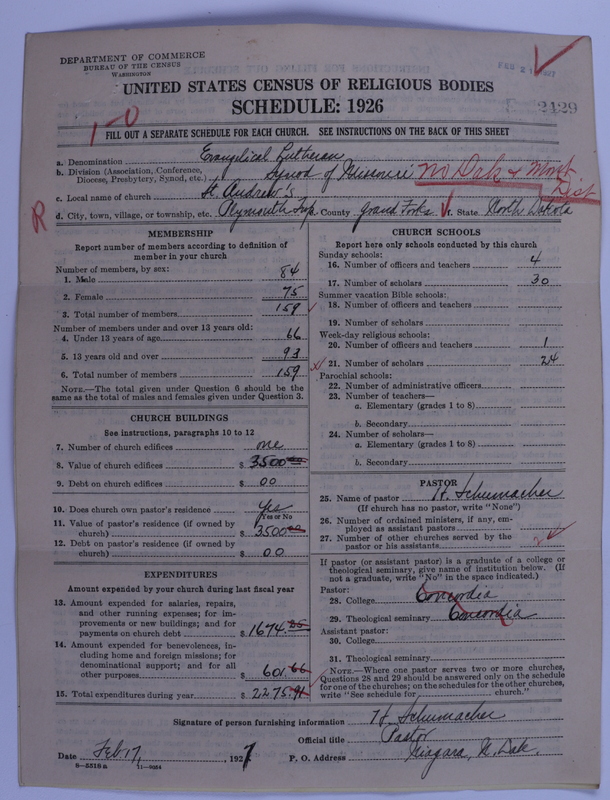 DEPARTMENT OF COMMERCE
BUREAU OF THE CENSUS
WASHINGTON
UNITED STATES CENSUS OF RELIGIOUS BODIES
SCHEDULE: 1926
2429
1-0
FILL OUT A SEPARATE SCHEDULE FOR EACH CHURCH. SEE INSTRUCTIONS ON THE BACK OF THIS SHEET
a. Denomination Evangelical Lutheran
b. Division (Association, Conference, Diocese, Presbytery, Synod, etc.) Synod of Missouri No Dak & Mont Dist
c. Local name of church St. Andrew's
R
d. City, town, village, or township, etc. Plymouth Twp. e. County Grand Forks f. State North Dakota
MEMBERSHIP
Report number of members according to definition of
member in your church
Number of members, by sex:
1. Male 84
2. Female 75
3. Total number of members 159
Number of members under and over 13 years old:
4. Under 13 years of age 66
5. 13 years old and over 93
6. Total number of members 159
NOTE.—The total given under Question 6 should be the
same as the total of males and females given under Question 3.
CHURCH BUILDINGS
See instructions, paragraphs 10 to 12
7. Number of church edifices one
8. Value of church edifices $ 3500
9. Debt on church edifices $ 00
10. Does church own pastor's residence yes
Yes or No
11. Value of pastor's residence (if owned by
church) $ 3500.00
12. Debt on pastor's residence (if owned by
church) $ 00
EXPENDITURES
Amount expended by your church during last fiscal year
13. Amount expended for salaries, repairs,
and other running expenses; for im-
provements or new buildings; and for
payments on church debt $ 1674.25
14. Amount expended for benevolences, in-
cluding home and foreign missions; for
denominational support; and for all
other purposes $ 601.66
15. Total expenditures during year $ 2275.91
CHURCH SCHOOLS
Report here only schools conducted by this church
Sunday schools:
16. Number of officers and teachers 4
17. Number of scholars 30
Summer vacation Bible schools:
18. Number of officers and teachers
19. Number of scholars
Week-day religious schools:
20. Number of officers and teachers 1
21. Number of scholars 24
Parochial schools:
22. Number of administrative officers
23. Number of teachers—
a. Elementary (grades 1 to 8)
b. Secondary
24. Number of scholars—
a. Elementary (grades 1 to 8)
b. Secondary
PASTOR
25. Name of pastor H. Schumacher
(If church has no pastor, write "None")
26. Number of ordained ministers, if any, em-
ployed as assistant pastors
27. Number of other churches served by the
pastor or his assistants 2
If pastor (or assistant pastor) is a graduate of a college or
theological seminary, give name of institution below. (If
not a graduate, write "No" in the space indicated.)
Pastor:
28. College Concordia
29. Theological seminary Concordia
Assistant pastor:
30. College
31. Theological seminary
NOTE.—Where one pastor serves two or more churches,
Questions 28 and 29 should be answered only on the schedule
for one of the churches; on the schedules for the other churches,
write "See schedule for church."
Signature of person furnishing information H. Schumacher
Official title Pastor
Date Feb 17, 1927 P. O. Address Niagara, N. Dak.
8—5518a 11—9034